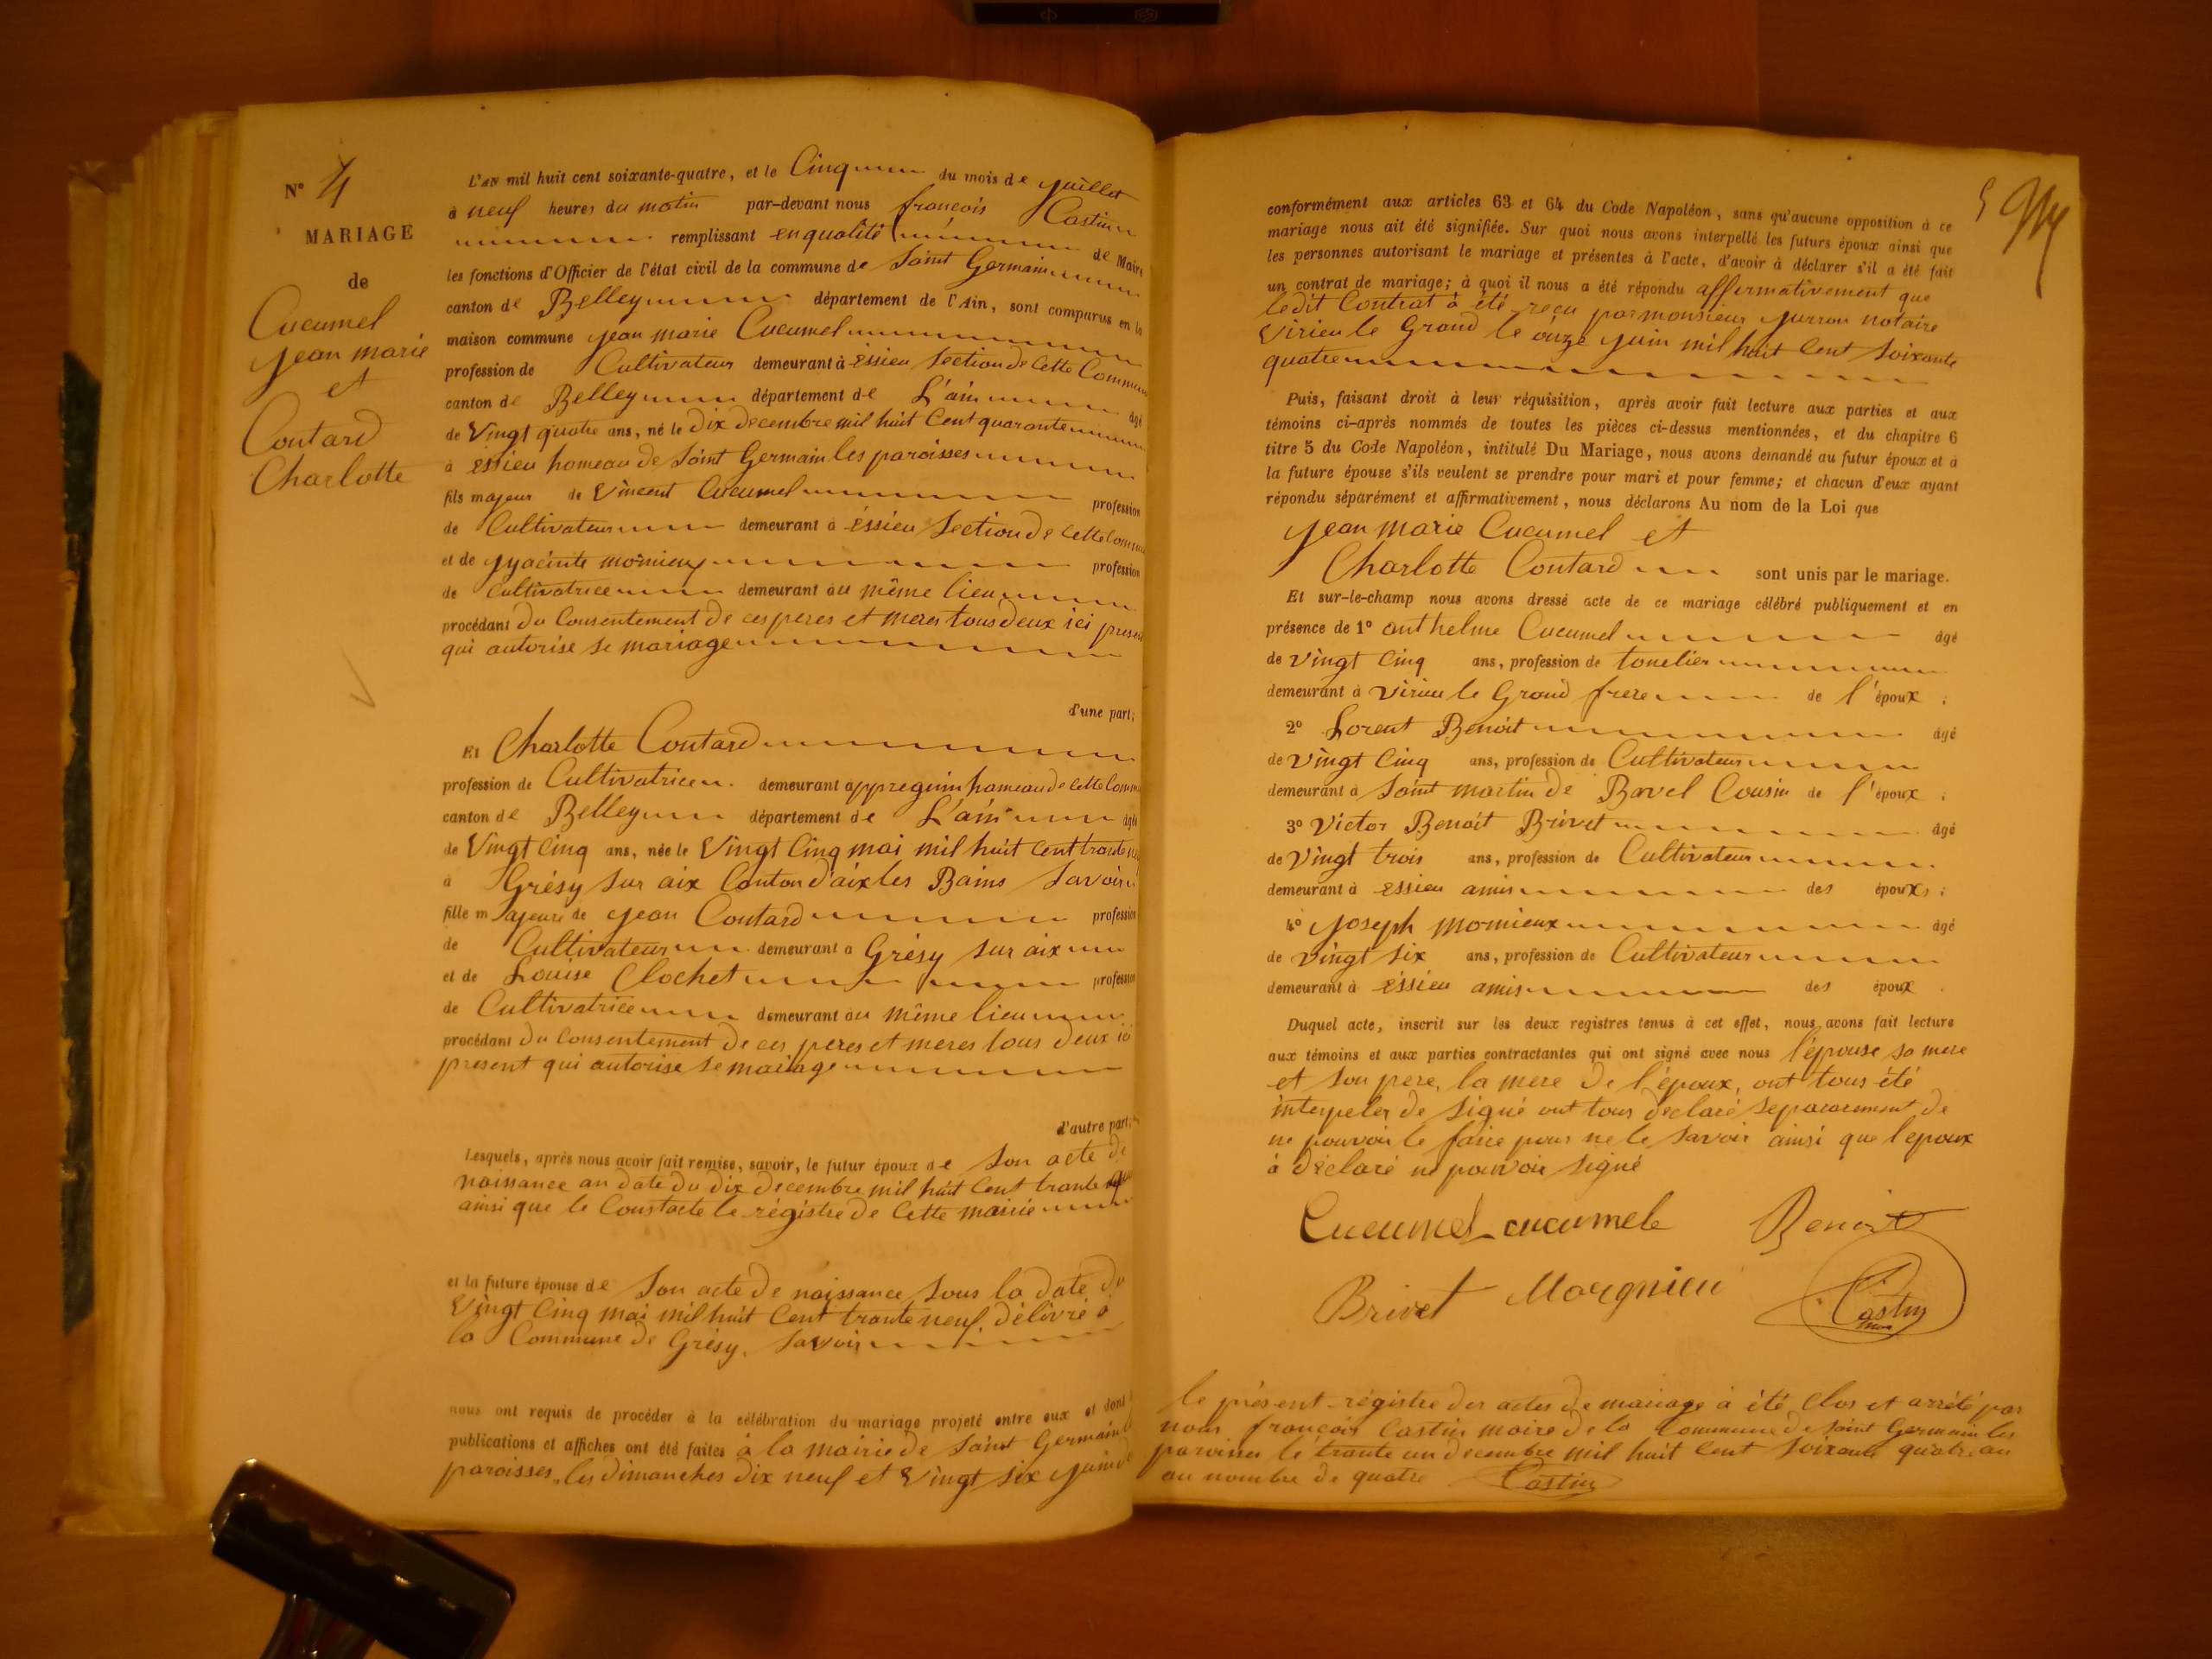 N° 4
MARIAGE
de
Cucumel
jean marie
et
Contard
Charlotte
L'an mil huit cent soixante-quatre, et le Cinq du mois de juillet
à neuf heures du matin par-devant nous françois Castin
remplissant en qualité de Maire
les fonctions d'Officier de l'état civil de la commune de Saint Germain
canton de Belley département de l'Ain, sont comparus en la
maison commune jean marie Cucumel
profession de Cultivateur demeurant à éssieu Section de cette Commune
canton de Belley département de L'ain âgé
de Vingt quatre ans, né le dix decembre mil huit Cent quarante
à essieu hameau de Saint Germain les paroisses
fils majeur de Vincent Cucumel profession
de Cultivateur demeurant à éssieu Section de cette Comm
et de yyacinte momieux profession
de Cultivatrice demeurant au même lieu
procédant du Consentement de ces peres et meres tous deux ici present
qui autorise se mariage
d'une part;
Et Charlotte Contard
profession de Cultivatrice demeurant à ppregnin hameau de cette Comm
canton de Belley département de L'ain âgée
de Vingt Cinq ans, née le Vingt Cinq mai mil huit Cent trante
à Grésy Sur aix Canton d'aix les Bains Savoir
fille majeure de jean Contard profession
de Cultivateur demeurant à Grésy Sur aix
et de Louise Clochet profession
de Cultivatrice demeurant au même lieu
procédant du Consentement de ces peres et meres tous deux ici
present qui autorise se mariage
d'autre part,
Lesquels, après nous avoir fait remise, savoir, le futur époux de Son acte de
naissance an date du dix decembre mil huit Cent trante
ainsi que le Constacte le régistre de Cette mairie
et la future épouse de Son acte de naissance Sous la date du
Vingt Cinq mai mil huit Cent trante neuf, délivré à
la Commune de Grésy, Savoir
nous ont requis de procéder à la célébration du mariage projeté entre eux et dont
publications et affiches ont été faites à la mairie de Saint Germain
paroisses, les dimanches dix neuf et Vingt Six juin
conformément aux articles 63 et 64 du Code Napoléon, sans qu'aucune opposition à ce
mariage nous ait été signifiée. Sur quoi nous avons interpellé les futurs époux ainsi que
les personnes autorisant le mariage et présentes à l'acte, d'avoir à déclarer s'il a été fait
un contrat de mariage; à quoi il nous a été répondu affirmativement que
ledit Contrat à été reçu par monsieur jurron notaire
Virieu le Grand le onze juin mil huit Cent Soixante
quatre
Puis, faisant droit à leur réquisition, après avoir fait lecture aux parties et aux
témoins ci-après nommés de toutes les pièces ci-dessus mentionnées, et du chapitre 6
titre 5 du Code Napoléon, intitulé Du Mariage, nous avons demandé au futur époux et à
la future épouse s'ils veulent se prendre pour mari et pour femme; et chacun d'eux ayant
répondu séparément et affirmativement, nous déclarons Au nom de la Loi que
jean marie Cucumel et
Charlotte Contard sont unis par le mariage.
Et sur-le-champ nous avons dressé acte de ce mariage célébré publiquement et en
présence de 1° anthelme Cucumel âgé
de Vingt Cinq ans, profession de tonelier
demeurant à Virieu le Grand frere de l'époux ;
2° Lorent Benoit âgé
de Vingt Cinq ans, profession de Cultivateur
demeurant à Saint martin de Bavel Cousin de l'époux ;
3° Victor Benoit Brivet âgé
de Vingt trois ans, profession de Cultivateur
demeurant à essieu amis des époux ;
4° joseph momieux âgé
de Vingt Six ans, profession de Cultivateur
demeurant à éssieu amis des époux
Duquel acte, inscrit sur les deux registres tenus à cet effet, nous avons fait lecture
aux témoins et aux parties contractantes qui ont signé avec nous l'épouse sa mere
et Son pere, la mere de l'époux, ont tous été
interpeler de Signé ont tous déclaré separarement de
ne pouvoir le faire pour ne le Savoir ainsi que l'epoux
à déclaré ne pouvoir Signé
Cucumel cucumele Benoit
Brivet Morgnieu Castin
maire
le présent régistre des actes de mariage à été Clos et arrété par
nous françois Castin maire de la Commune de Saint Germain les
paroisses le trante un decembre mil huit Cent Soixante quatre, au
au nombre de quatre Castin